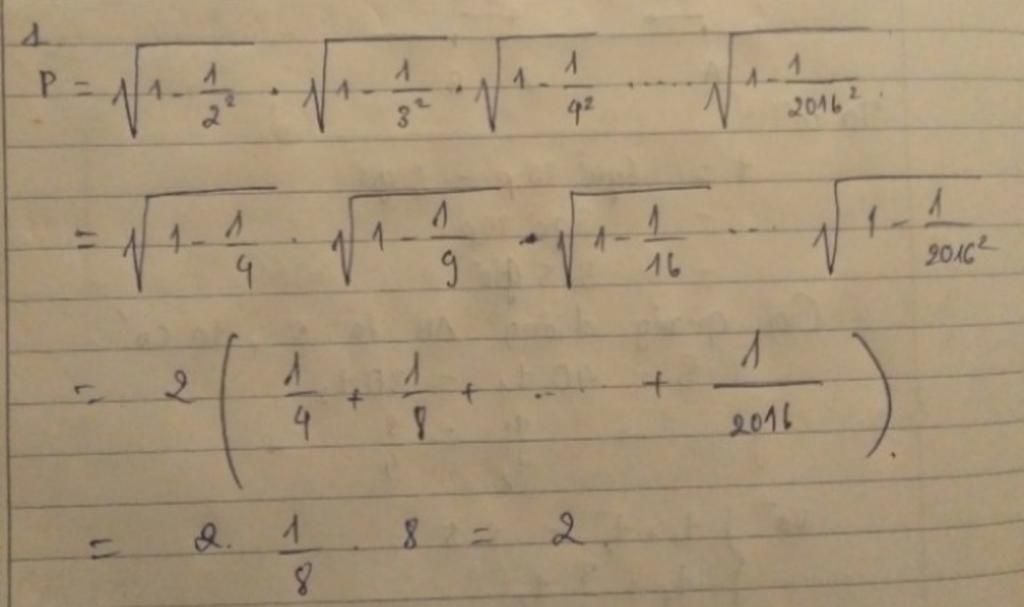 1.
P = √(1 - 1/2²) . √(1 - 1/3²) . √(1 - 1/4²) ..... √(1 - 1/2016²) .
= √(1 - 1/4) . √(1 - 1/9) . √(1 - 1/16) .... √(1 - 1/2016²)
= 2 (1/4 + 1/8 + ... . + 1/2016) .
= 2. 1/8 . 8 = 2